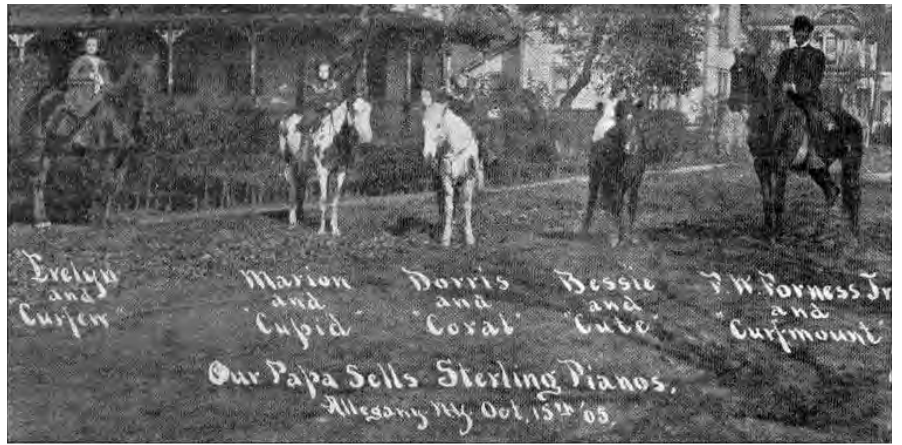 Evelyn
and
"Curfew"
Marion
and
"Cupid"
Dorris
and
"Coral"
Bessie
and
"Cute"
F.W. Forness Jr
and
"Curfmount"
Our Papa Sells Sterling Pianos.
Allegany NY. Oct. 15th '05.